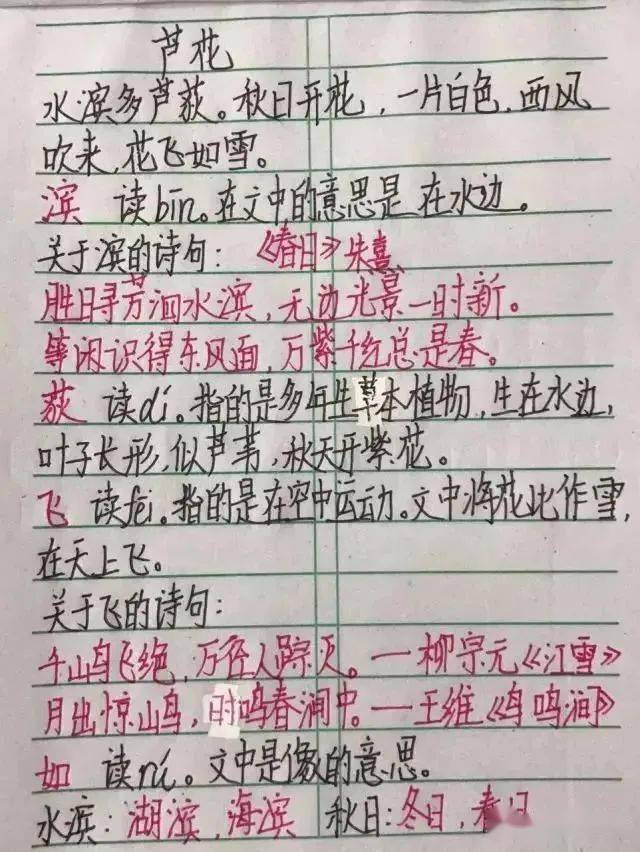 芦花
水滨多芦荻。秋日开花，一片白色，西风
吹来，花飞如雪。
滨 读bin。在文中的意思是 在水边。
关于滨的诗句：《春日》朱熹
胜日寻芳泗水滨，无边光景一时新。
等闲识得东风面，万紫千红总是春。
荻 读dí。指的是多年生草本植物，生在水边，
叶子长形，似芦苇，秋天开紫花。
飞 读fēi。指的是在空中运动。文中将花比作雪，
在天上飞。
关于飞的诗句：
千山鸟飞绝，万径人踪灭。—柳宗元《江雪》
月出惊山鸟，时鸣春涧中。—王维《鸟鸣涧》
如 读rú。文中是像的意思。
水滨：湖滨，海滨 秋日：冬日，春日